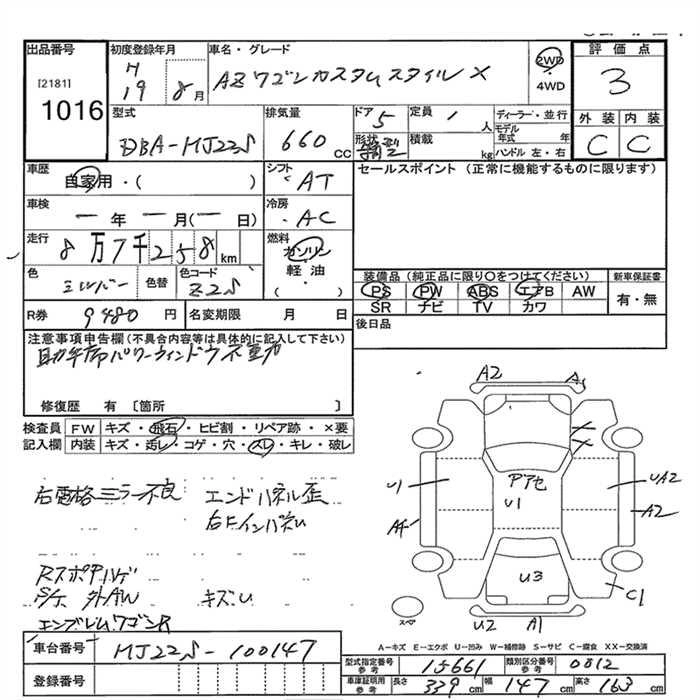 出品番号
[2181]
1016
初度登録年月
H
19 8月
車名・グレード
AZワゴンカスタムスタイルX
2WD
・
4WD
評価点
3
外装 内装
C C
型式
DBA-MJ22S
排気量
660 CC
ドア 5
形状
定員 1 人
積載 kg
ディーラー・並行
モデル年式 年
ハンドル 左・右
車歴
自家用・( )
シフト
AT
セールスポイント (正常に機能するものに限ります)
車検
一年 一月(一日)
冷房
AC
走行
8万7千258km
燃料
ガソリン
軽油
・( )
色
シルバー
色替
色コード
Z2S
装備品 (純正品に限り○をつけてください)
PS PW ABS エアB AW
SR ナビ TV カワ
新車保証書
有・無
R券 9480円
名変期限 月 日
後日品
注意事項申告欄(不具合内容等は具体的に記入して下さい)
助手席パワーウィンドウ不動
修復歴 有 [箇所 ]
検査員 FW キズ・飛石・ヒビ割・リペア跡・×要
記入欄 内装 キズ・汚レ・コゲ・穴・スレ・キレ・破レ
右電格ミラー不良
エンドパネル歪
右FインパネU
Rスポアルゲ
S/K 外AW キズU
エンブレムワゴンR
A2
A
U1
A4
Pアセ
U1
UA2
A2
U3
C1
U2 A1
スペア
A-キズ E-エクボ U-凹み W-補修跡 S-サビ C-腐食 XX-交換済
車台番号 MJ22S-100147
登録番号
型式指定番号 参考 15661
類別区分番号 参考 0812
車庫証明用 参考 長さ 339cm 幅 147cm 高さ 163cm